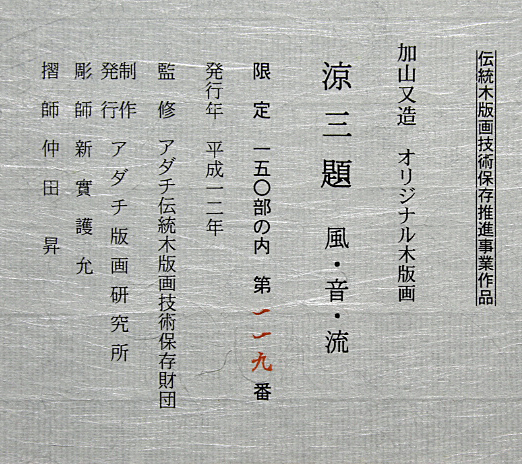 伝統木版画技術保存推進事業作品
加山又造 オリジナル木版画
涼三題 風・音・流
限定 一五〇部の内 第一一九番
発行年 平成一二年
監修 アダチ伝統木版画技術保存財団
制作
発行 アダチ版画研究所
彫師 新實護允
摺師 仲田 昇